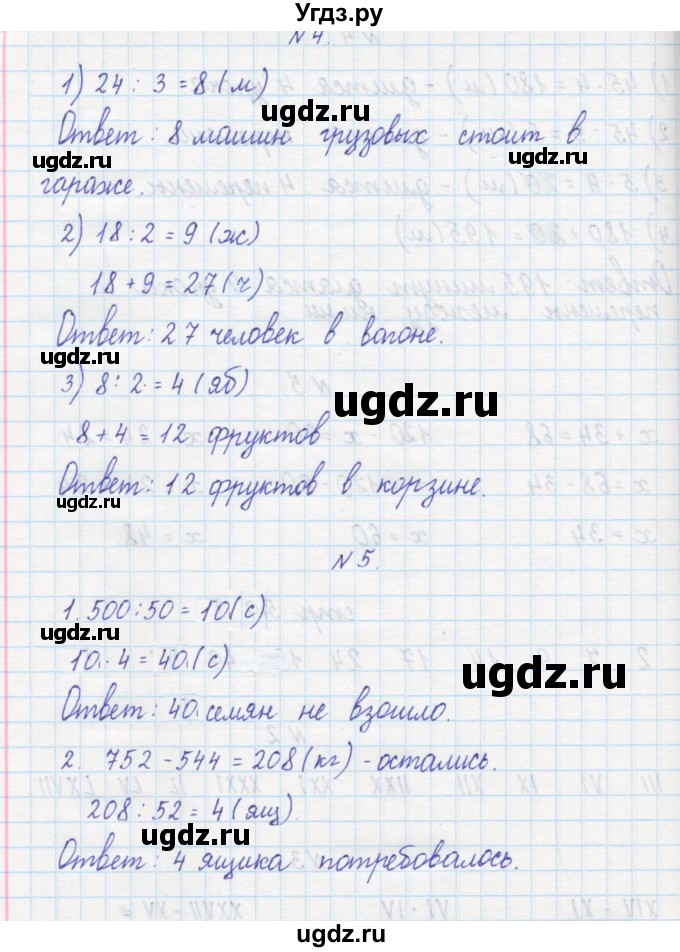 Угдз.ру
N 4.
1) 24 : 3 = 8 (м)
Ответ: 8 машин грузовых стоит в
гараже.
2) 18 : 2 = 9 (ж)
18 + 9 = 27 (ч)
Ответ: 27 человек в вагоне.
3) 8 : 2 = 4 (яб)
8 + 4 = 12 фруктов
Ответ: 12 фруктов в корзине.
N 5.
1. 500 : 50 = 10 (с)
10 · 4 = 40 (с)
Ответ: 40 семян не взошло.
2. 752 - 544 = 208 (кг) - остались.
208 : 52 = 4 (ящ)
Ответ: 4 ящика потребовалось.
ugdz.ru
ugdz.ru
ugdz.ru
ugdz.ru
ugdz.ru
ugdz.ru
ugdz.ru
ugdz.ru
ugdz.ru
ugdz.ru
ugdz.ru
ugdz.ru